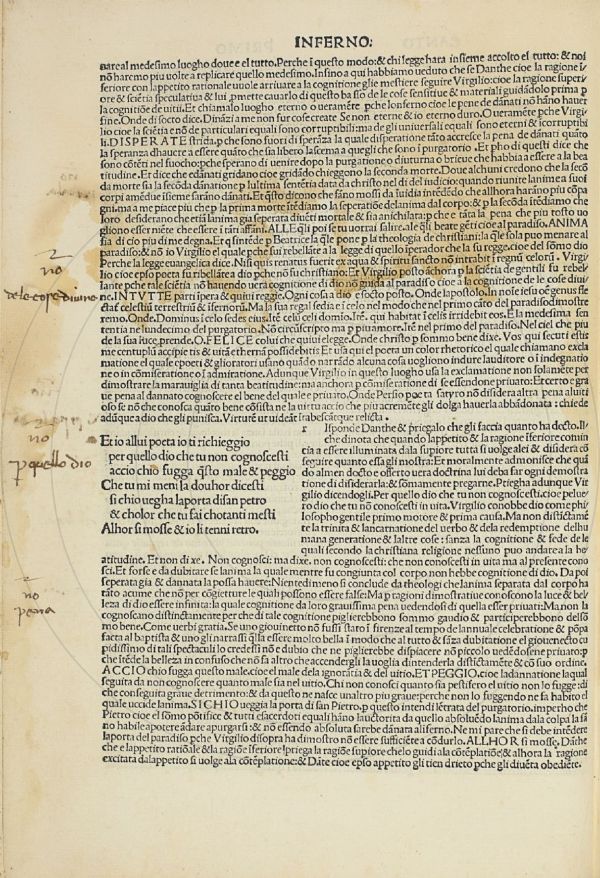 INFERNO:
nare al medesimo luogho doue e el tutto. Perche i questo modo: & chi legge hara insieme accolto el tutto: & noi
nō haremo piu uolte a replicare quello medesimo. Insino a qui habbiamo ueduto che se Danthe cioe la ragione ī
feriore con lappetito rationale uuole arriuare a la cognitione gli mestiere seguire Virgilio: cioe la ragione superi
ore & sciētia speculatiua & lui pmette cauarlo di questo basso de le cose sensitiue & materiali guidādolo prima p
la cognitiōe de uitii. Et chiamalo luogho eterno o ueramēte pche lonferno cioe le pene de dānati nō hāno hauer
fine. Onde di socto dice. Dināzi a me non fur cose create Se non eterne & io eterno duro. O ueramēte pche Virgi
lio cioe la sciētia e nō de particulari equali sono corruptibili: ma de gli uniuersali equali sono eterni & īcorruptibi
li. DISPERATE strida. p che sono fuori di sperāza la quale disperatione tāto accresce la pena de dānati quāto
la speranza dhauere a essere quādo che sia libero lascema a quegli che sono ī purgatorio. Et pho di questi dice che
sono cōtēti nel fuocho: pche sperano di uenire dopo la purgatione o diuturna o brieue che habbia a essere a la bea
titudine. Et dice che edānati gridano cioe gridādo chieggono la seconda morte. Doue alchuni credono che la secō
da morte sia la secōda dānatione p lultima sentētia data da christo nel dì del iudicio quando riunite lanime a suoi
corpi amēdue insieme sarano dānati. Et q̄sto dicono che fāno mossi da īuidia intēdēdo che allhora harāno piu cōpa
gni. ma a me piace piu che p la prima morte ītēdiamo la seperatiōe del anima dal corpo: & p la secōda itēdiamo che
loro desiderano che etiā lanima gia seperata diuēti mortale & sia anichilata: p che e tāta la pena che piu tosto uo
gliono esser niēte che essere ī tāti affāni. ALLE q̄li poi se tu uorrai salire. ale q̄li beate gēti cioe al paradiso. ANIMA
sia di cio piu di me degna. Et q̄ sintēde p Beatrice la q̄le pone p la theologia de christiani: la q̄le sola puo menare al
paradiso: & nō io Virgilio el quale p che fui rebellāte a la legge di quello īperador che la su regge. cioe del sōmo dio
Perche la legge euangelica dice. Nisi quis renatus fuerit ex aqua & spiritu sancto nō intrabit ī regnū celorū. Virgi
lio cioe epso poeta fu ribellāte a dio p che nō fu christiano: Et Virgilio posto āchora p la sciētia de gentili fu rebel
lante pche tale sciētia nō hauendo uera cognitione di dio nō guida al paradiso cioe a la cognitione de le cose diui
ne. INTVTTE parti ipera & quiui reggie. Ogni cosa a dio e socto posto. Onde lapostolo. In noīe iesu oē genu fle
ctat celestiū terrestriū & īfernorū. Ma la sua regal sedia e ī celo nel modo che nel primo cāto del paradiso dimostre
remo. Onde. Dominus ī celo sedes eius. Itē celū celi domio. Itē. qui habitat ī celis irridebit eos. E la medesima sen
tentia ne lundecimo del purgatorio. Nō circūscripto ma p piu amore. Itē nel primo del paradiso. Nel ciel che piu
de la sua luce prende. O. FELICE colui che quiui elegge. Onde christo p sommo bene dixe. Vos qui secuti estis
me centuplū accipietis & uitā eternā possidebitis Et usa qui el poeta un color rhetorico el quale chiamano excla
matione el quale epoeti & gli oratori usano quādo narrādo alcuna cosa uogliono indure lauditore o ī indegnatio
ne o in cōmiseratione o ī admiratione. Adunque Virgilio in questo luogho usa la exclamatione non solamēte per
dimostrare la marauiglia di tanta beatitudine: ma anchora p cōmiseratione di se essendone priuato: Et certo e gra
ue pena al dannato cognoscere el bene del quale e priuato. Onde Persio poeta satyro nō disidera altra pena al uiti
oso se nō che conosca quāto bene cōsista ne la uirtu accio che piu acremēte gli dolga hauerla abbādonata: chiede
adūque a dio che gli punisca. Virtutē ut uideāt ītabescātque relicta.
Et io allui poeta io ti richieggio
per quello dio che tu non cognoscesti
accio chio fugga q̄sto male & peggio
Che tu mi meni la douhor dicesti
si chio uegha la porta di san petro
& cholor che tu fai chotanti mesti
Alhor si mosse & io li tenni retro.
r Isponde Danthe & priegalo che gli faccia quanto ha decto. Il
che dinota che quando lappetito & la ragione īferiore comin
cia a essere illuminata dalla supiore tutta si uolge a lei & disidera cō
seguire quanto essa gli mostra: Et moralmente admonisce che quā
do alchun docto e offerto uera doctrina lui deba far ogni demostra
tione di disiderarla: & sōmamente pregarne. Priegha adunque Vir
gilio dicendogli. Per quello dio che tu non cognoscesti. cioe pel ue
ro dio che tu nō conoscesti in uita. Virgilio conobbe dio come phi
losopho gentile primo motore & prima causa. Ma non distictamē
te la trinita & lancarnatione del uerbo & de la redemptione del hu
mana generatione & laltre cose: sanza la cognitione & fede de le
quali secondo la christiana religione nessuno puo andare a la be
atitudine. Et non dixe. Non cognosci: ma dixe. non cognoscesti: che non conoscesti in uita ma al presente cono
sci. Et forse e da dubitare se lanima la quale mentre fu congiunta col corpo non hebbe cognitione di dio. Da poi
seperata gia & dannata la possa hauere: Niente di meno si conclude da theologi che lanima separata dal corpo ha
tāto acume che nō per cōgietture le quali possono essere false: Ma p ragioni dimostratiue conoscono la luce & bel
leza di dio essere infinita: la quale cognitione da loro grauissima pena uedendosi di quella esser priuati: Ma non la
cognoscano distinctamente perche di tale cognitione piglierebbono sommo gaudio & participerebbono del sō
mo bene. Come uerbi gratia. Se uno giouinetto nō fussi stato ī firenze al tempo de lannuale celebratione & pōpa
facta al baptista & uno gli narrassi q̄lla essere molto bella ī modo che al tutto & sāza dubitatione el giouinecto cu
pidissimo di tali spectaculi lo credessi nō e dubio che ne piglierebbe dispiacere nō piccolo uedēdosene priuato: p
che itēde la belleza in confuso che nō fa altro che accendergli la uoglia dintenderla distictāmēte & cō suo ordine.
ACCIO chio fugga questo male. cioe el male dela ignorātia & del uitio. ET PEGGIO. cioe la dannatione la qual
seguita da non cognoscere quanto male sia nel uitio. Chi non conosci quanto sia pestifero el uitio non lo fugge: di
che conseguita graue detrimento: & da questo ne nasce un altro piu graue perche non lo fuggendo ne fa habito el
quale uccide lanima. SICHIO ueggia la porta di san Pietro. p questo intendi lētrata del purgatorio. imperho che
Pietro cioe el sōmo pōtifice & tutti e sacerdoti equali hāno lauctorita da quello absoluēdo lanima dala colpa la fā
no habile a potere ādare a purgarsi: & nō essendo absoluta sarebe dānata al iferno. Ne mi pare che si debe intēdere
la porta del paradiso pche Virgilio disopra ha dimostro nō essere sufficiēte a cōdurlo. ALLHOR si mosse. Dāthe
che e lappetito ratiōale & la ragiōe īferiore: priega la ragiōe supiore che lo guidi ala cōtēplatiōe: & alhora la ragione
excitata dalappetito si uolge ala cōtēplatione: & Dāte cioe epso appetito gli tien drieto pche gli diuēta obediēte.
no
de le cose diuine
no
p quello dio
no
pena